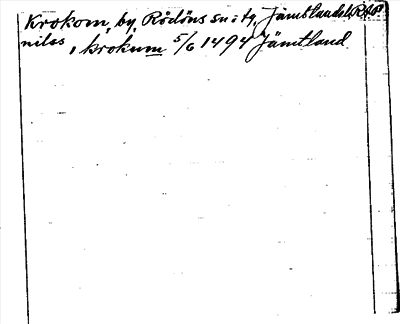 Krokom, by, Rödöns sn: tg, Jämtlands l.
nilss, krokum 5/6 1494 Jämtland